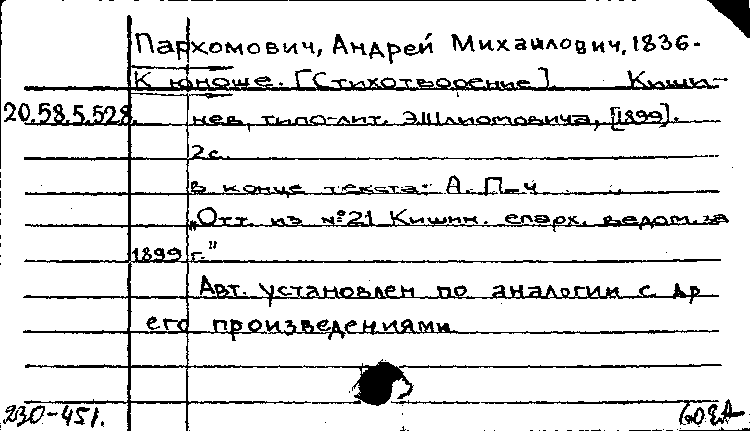 Пархомович, Андрей Михайлович, 1836-
К юноше. [Стихотворение]. Киши-
20.58.5.528. нев, типо-лит. Э.Шлиомовича, [1899].
2с.
В конце текста: А. П-ч
„Отт. из №21 Кишин. епарх. ведом. за
1899 г."
Авт. установлен по аналогии с др
его произведениями
230-451.